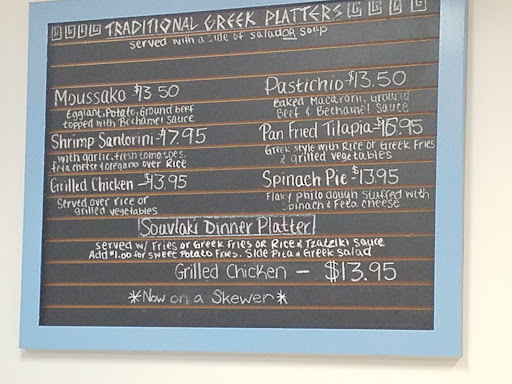 TRADITIONAL GREEK PLATTERS
served with a side of salad OR soup
Moussaka $13.50
Eggplant, Potato, Ground beef
topped with Bechamel Sauce
Shrimp Santorini-$17.95
with garlic, fresh tomatoes,
feta cheese & oregano over Rice
Grilled Chicken -$13.95
Served over rice or
grilled vegetables
Pastichio-$13.50
Baked Macaroni, Ground
Beef & Bechamel Sauce
Pan Fried Tilapia-$16.95
Greek style with Rice or Greek Fries
& grilled vegetables
Spinach Pie-$13.95
Flaky philo dough stuffed with
Spinach & Feta cheese
Souvlaki Dinner Platter
served w/ Fries or Greek Fries or Rice & Tzatziki Sauce
Add $1.00 for sweet Potato Fries. Side Pita & Greek Salad
Grilled Chicken - $13.95
*Now on a Skewer*